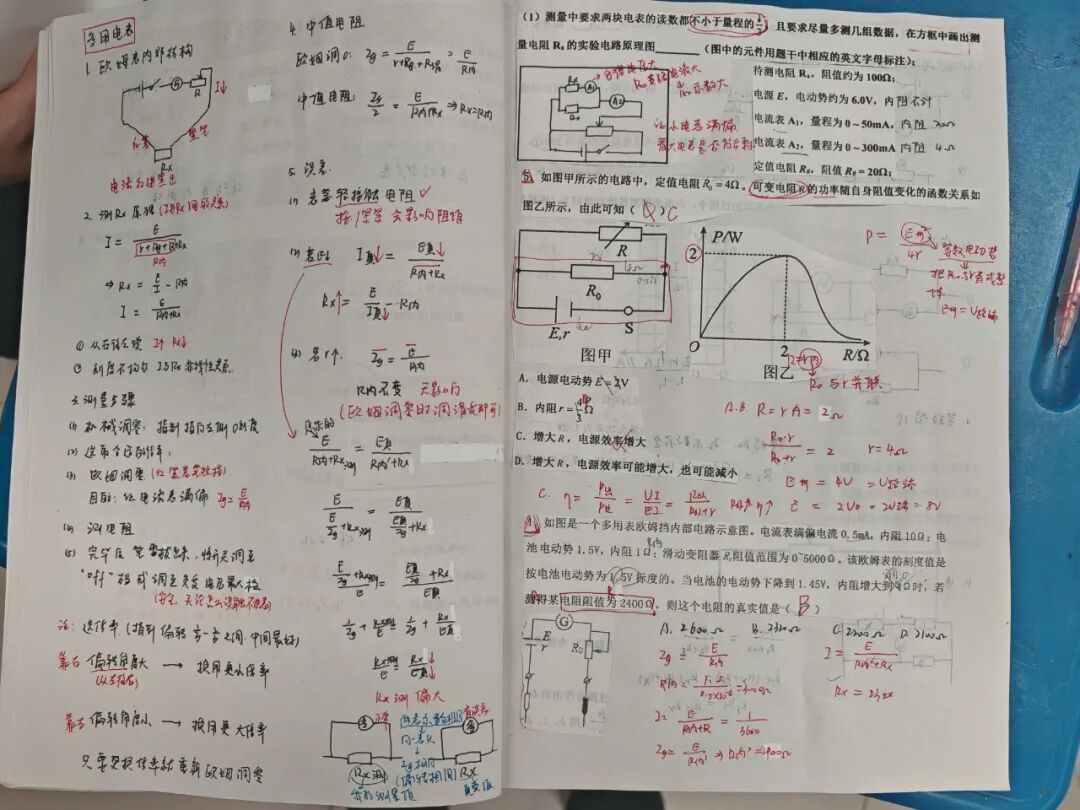 多用电表
1. 欧姆表内部结构
I↓
红表
黑笔
Rx
电流红进黑出
2. 测Rx原理
I = E
r+Rg+R+Rx
R内
⇒ Rx = E/I - R内
I = E/R内+Rx
① 从右往左读 I↑ Rx↓
② 刻度不均匀 I与Rx非线性关系
3. 测量步骤
(1) 机械调零: 指针指向左侧0刻度
(2) 选择合适的倍率:
(3) 欧姆调零 (红黑表笔短接)
目的: 让电流表满偏 Ig = E/R内
(4) 测电阻
(5) 完毕后 笔拔出来, 将开关调至
"off"档或调至交流电压最大档
注: 选倍率
靠右 偏转角度大 → 换用更小倍率
靠左 偏转角度小 → 换用更大倍率
只要更换倍率就重新欧姆调零
4. 中值电阻
欧姆调0: Ig = E/r+Rg+R滑 = E/R内
中值电阻: Ig/2 = E/R内+Rx ⇒ Rx=R内
5. 误差
(1) 表笔轻接触电阻
(2) 若E↓ I真↓ = E真↓/R内+Rx
Rx↑ = E/I真↓ - R内
(3) 若r↑. Ig = E/R内
R内不变 无影响
(欧姆调零时调滑变即可)
E/R内+Rx测 = E真/R内'+Rx
E/E/Ig+Rx测 = E真/E真/Ig+Rx
E/Ig+Rx测/E = E真/Ig+Rx/E真
1/Ig + Rx测/E = 1/Ig + Rx/E真
Rx测/E = Rx/E真↓
Rx测 偏大
Rx测
Rx
真实值
(1) 测量中要求两块电表的读数都不小于量程的1/3, 且要求尽量多测几组数据, 在方框中画出测
量电阻Rx的实验电路原理图 (图中的元件用题干中相应的英文字母标注):
待测电阻Rx, 阻值约为100Ω;
电源E, 电动势约为6.0V, 内阻不计
电流表A₁, 量程为0~50mA, 内阻 20Ω
电流表A₂, 量程为0~300mA 内阻 4Ω
定值电阻R₀, 阻值R₀=20Ω;
让小电表满偏
5. 如图甲所示的电路中, 定值电阻R₀=4Ω。可变电阻R的功率随自身阻值变化的函数关系如
图乙所示, 由此可知( )C
R
R₀
E,r
S
图甲
P/W
2
O
2
R/Ω
图乙
P = E²/4r
等效电动势
R₀与r并联
A. 电源电动势E=2V
B. 内阻r=4/3Ω
C. 增大R, 电源效率增大
D. 增大R, 电源效率可能增大, 也可能减小
A.B. R=r内=2Ω
R₀·r/R₀+r = 2 r=4Ω
C. η = P出/P总 = UI/EI = R外/R外+r R外↑ η↑
1. 如图是一个多用表欧姆挡内部电路示意图。电流表满偏电流0.5mA, 内阻10Ω; 电
池电动势1.5V, 内阻1Ω; 滑动变阻器R₀阻值范围为0~5000Ω。该欧姆表的刻度是
按电池电动势为1.5V标度的。当电池的电动势下降到1.45V, 内阻增大到4Ω时, 若
测得某电阻阻值为2400Ω, 则这个电阻的真实值是( B )
G
E
r
R₀
A. 2600Ω B. 2320Ω C. 2200Ω D. 2100Ω
Ig = E/R内
I = E/R内+R = 1/3600
I = E/R内'+Rx
Rx = 2320